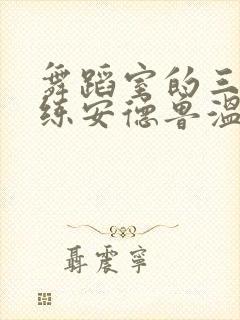 舞蹈室的三
练安德鲁温
聂震宁